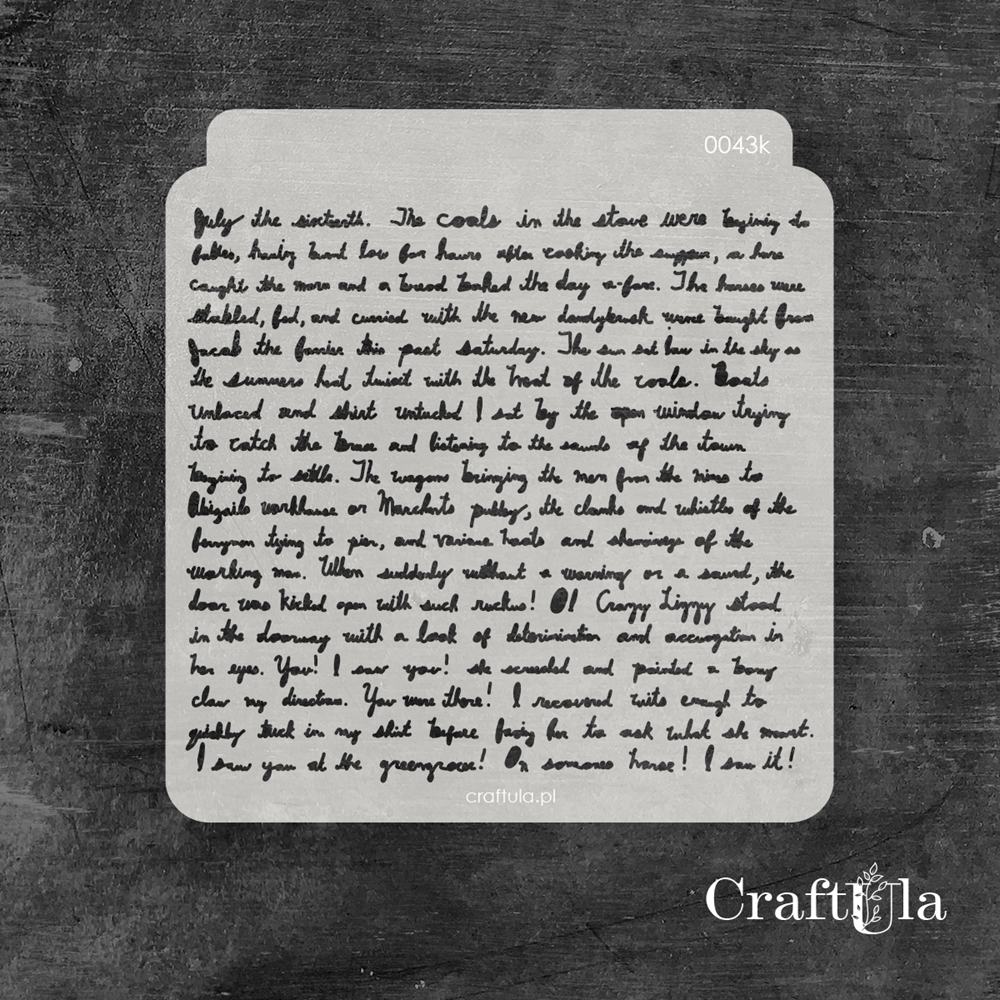 0043k
July the sixteenth. The coals in the stove were begining to
low for hours after cooking the supper, a hare
caught the morn and a bread baked the day a-fore. The horses were
stabled, fed, and curried with the new dandybrush were bought from
Jacob the farrier this past saturday. The sun sat low in the sky as
the summers heat twixt with the heat of the coals. Boots
unlaced and shirt untucked I sat by the open window trying
to catch the and listening to the sounds of the town
begining to settle. The wagons bringing the men from the mines to
Abigails workhouse or Marchents pubby, the clanks and whistles of the
ferrymen tying to pier, and various hoots and of the
working man. When suddenly without a warning or a sound, the
door was kicked open with such ruckus! O! Crazy Lizzy stood
in the doorway with a look of and in
her eyes. You! I saw you! she and pointed a bony
claw my direction. You were there! I recovered wits enough to
quickly tuck in my shirt before facing her to ask what she meant.
I saw you at the greengrocer! On someones horse! I saw it!
craftula.pl
CraftUla